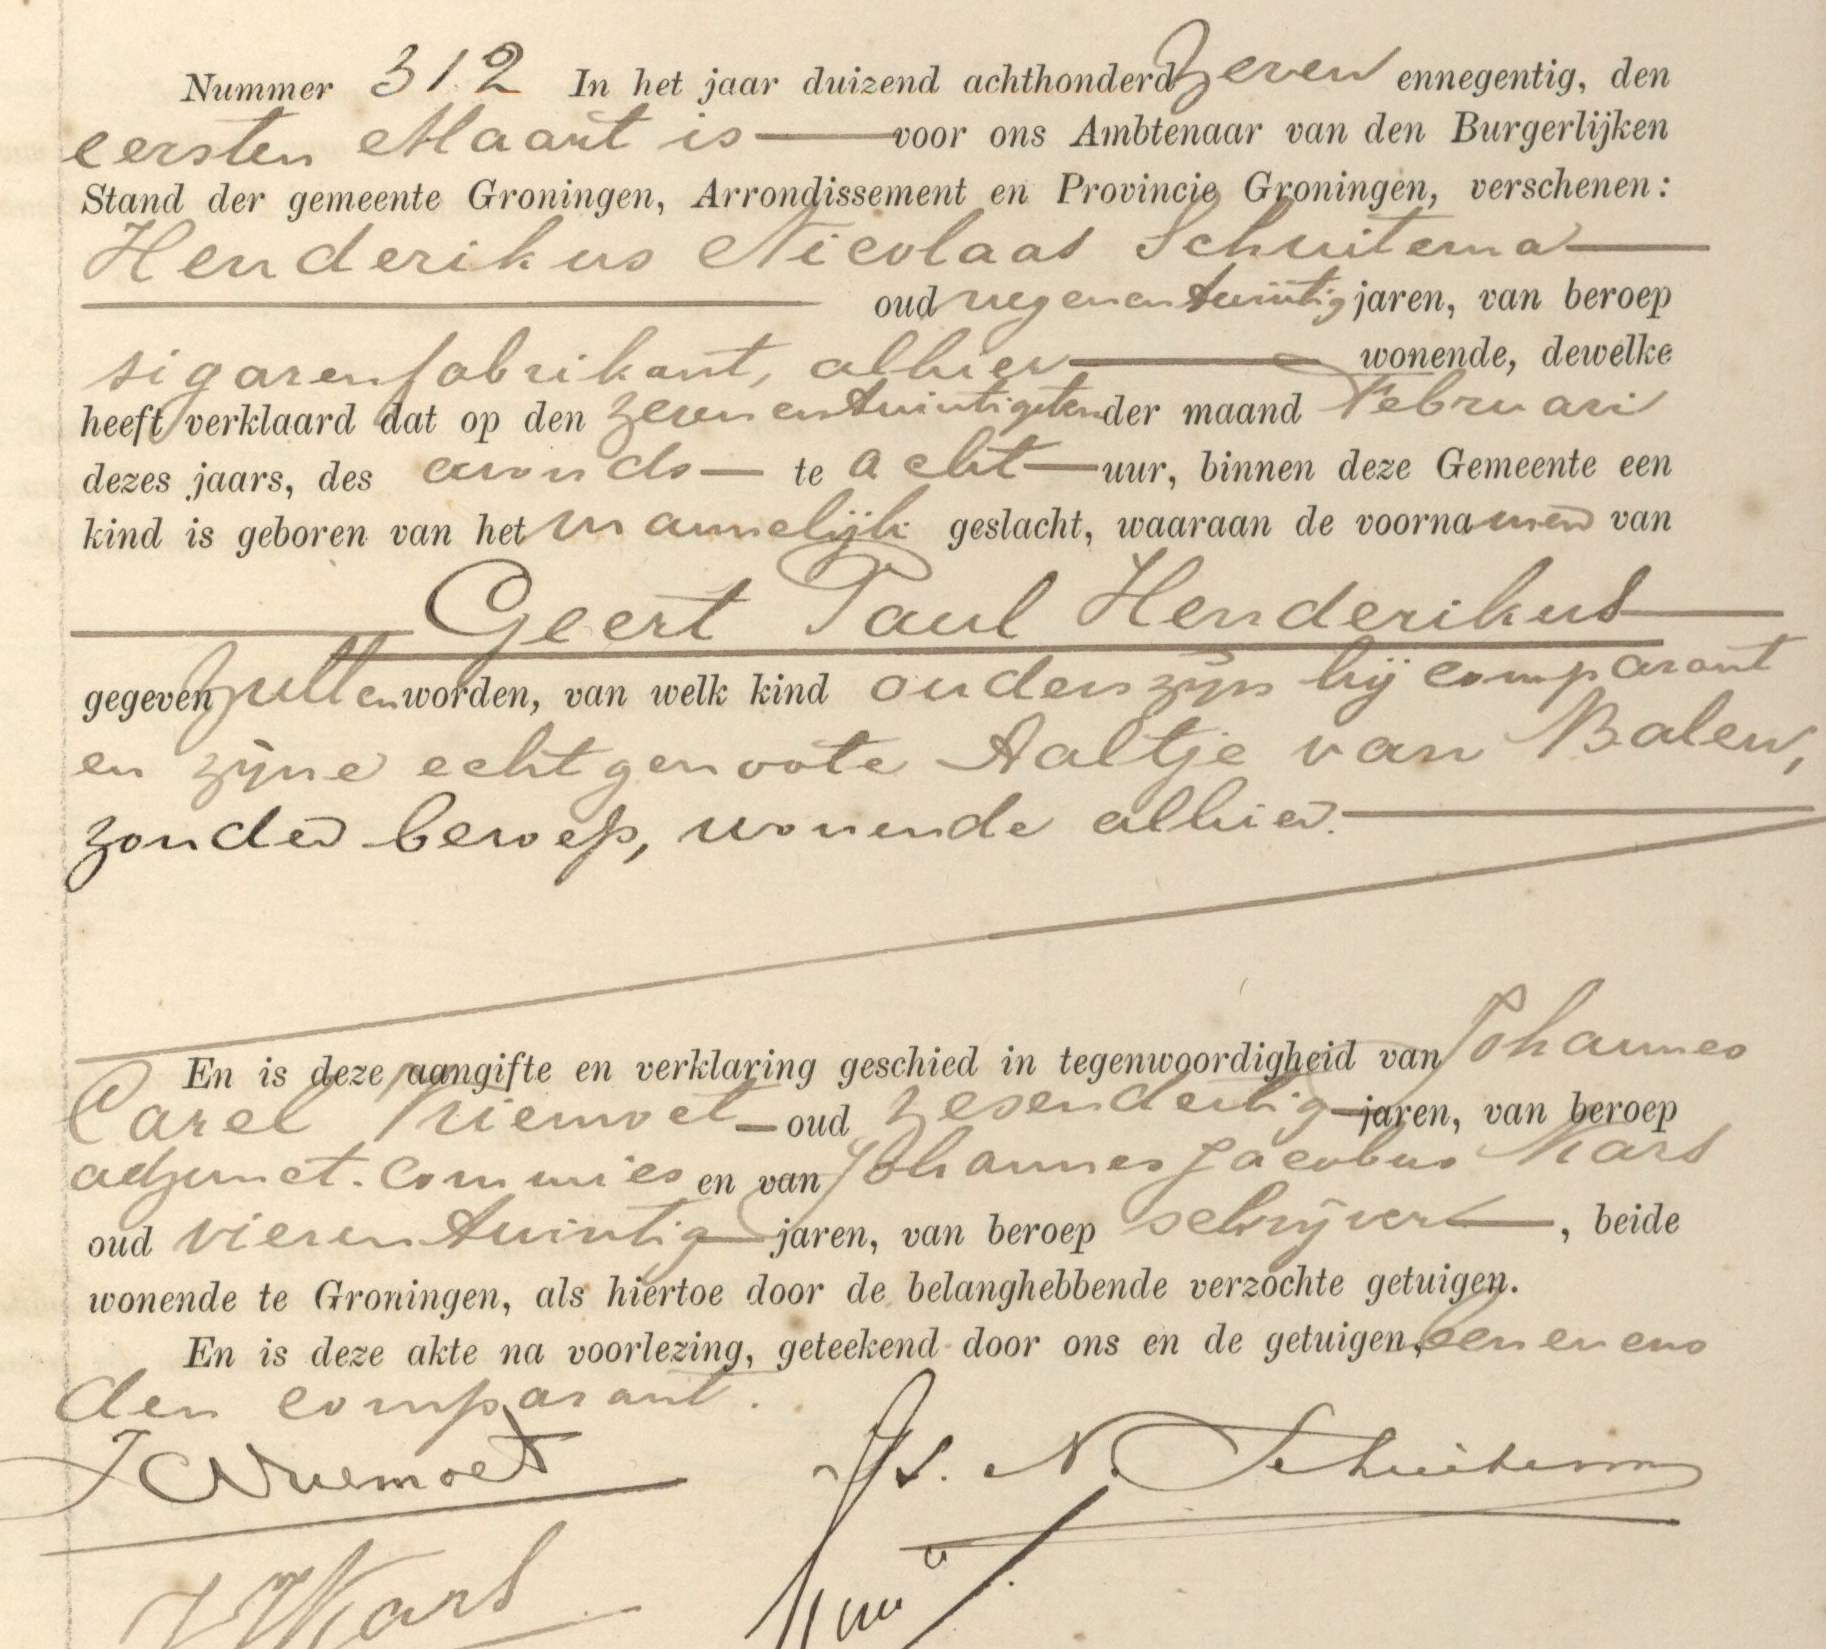 Nummer 312 In het jaar duizend achthonderd zeven ennegentig, den
eersten Maart is voor ons Ambtenaar van den Burgerlijken
Stand der gemeente Groningen, Arrondissement en Provincie Groningen, verschenen:
Henderikus Nicolaas Schuitema
oud negenentwintig jaren, van beroep
sigarenfabrikant, alhier wonende, dewelke
heeft verklaard dat op den zevenentwintigsten der maand Februari
dezes jaars, des avonds te acht uur, binnen deze Gemeente een
kind is geboren van het mannelijk geslacht, waaraan de voornamen van
Geert Paul Henderikus
gegeven zullen worden, van welk kind ouders zijn hij comparant
en zijne echtgenoote Aaltje van Balen,
zonder beroep, wonende alhier.
En is deze aangifte en verklaring geschied in tegenwoordigheid van Johannes
Carel Niemoet oud zesendertig jaren, van beroep
adjunct-commies en van Johannes Jacobus Kars
oud vierentwintig jaren, van beroep schrijver, beide
wonende te Groningen, als hiertoe door de belanghebbende verzochte getuigen.
En is deze akte na voorlezing, geteekend door ons en de getuigen, benevens
den comparant.
JCNiemoet Hs. N. Schuitema
JJKars